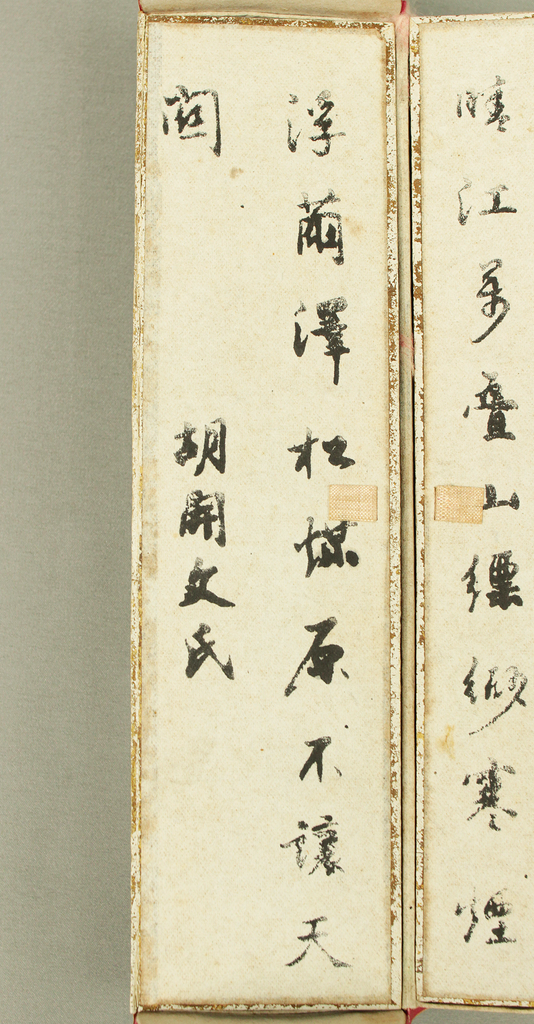 晴江萬叠山縹緲寒煙
浮繭澤松煤原不讓天
關
胡開文氏